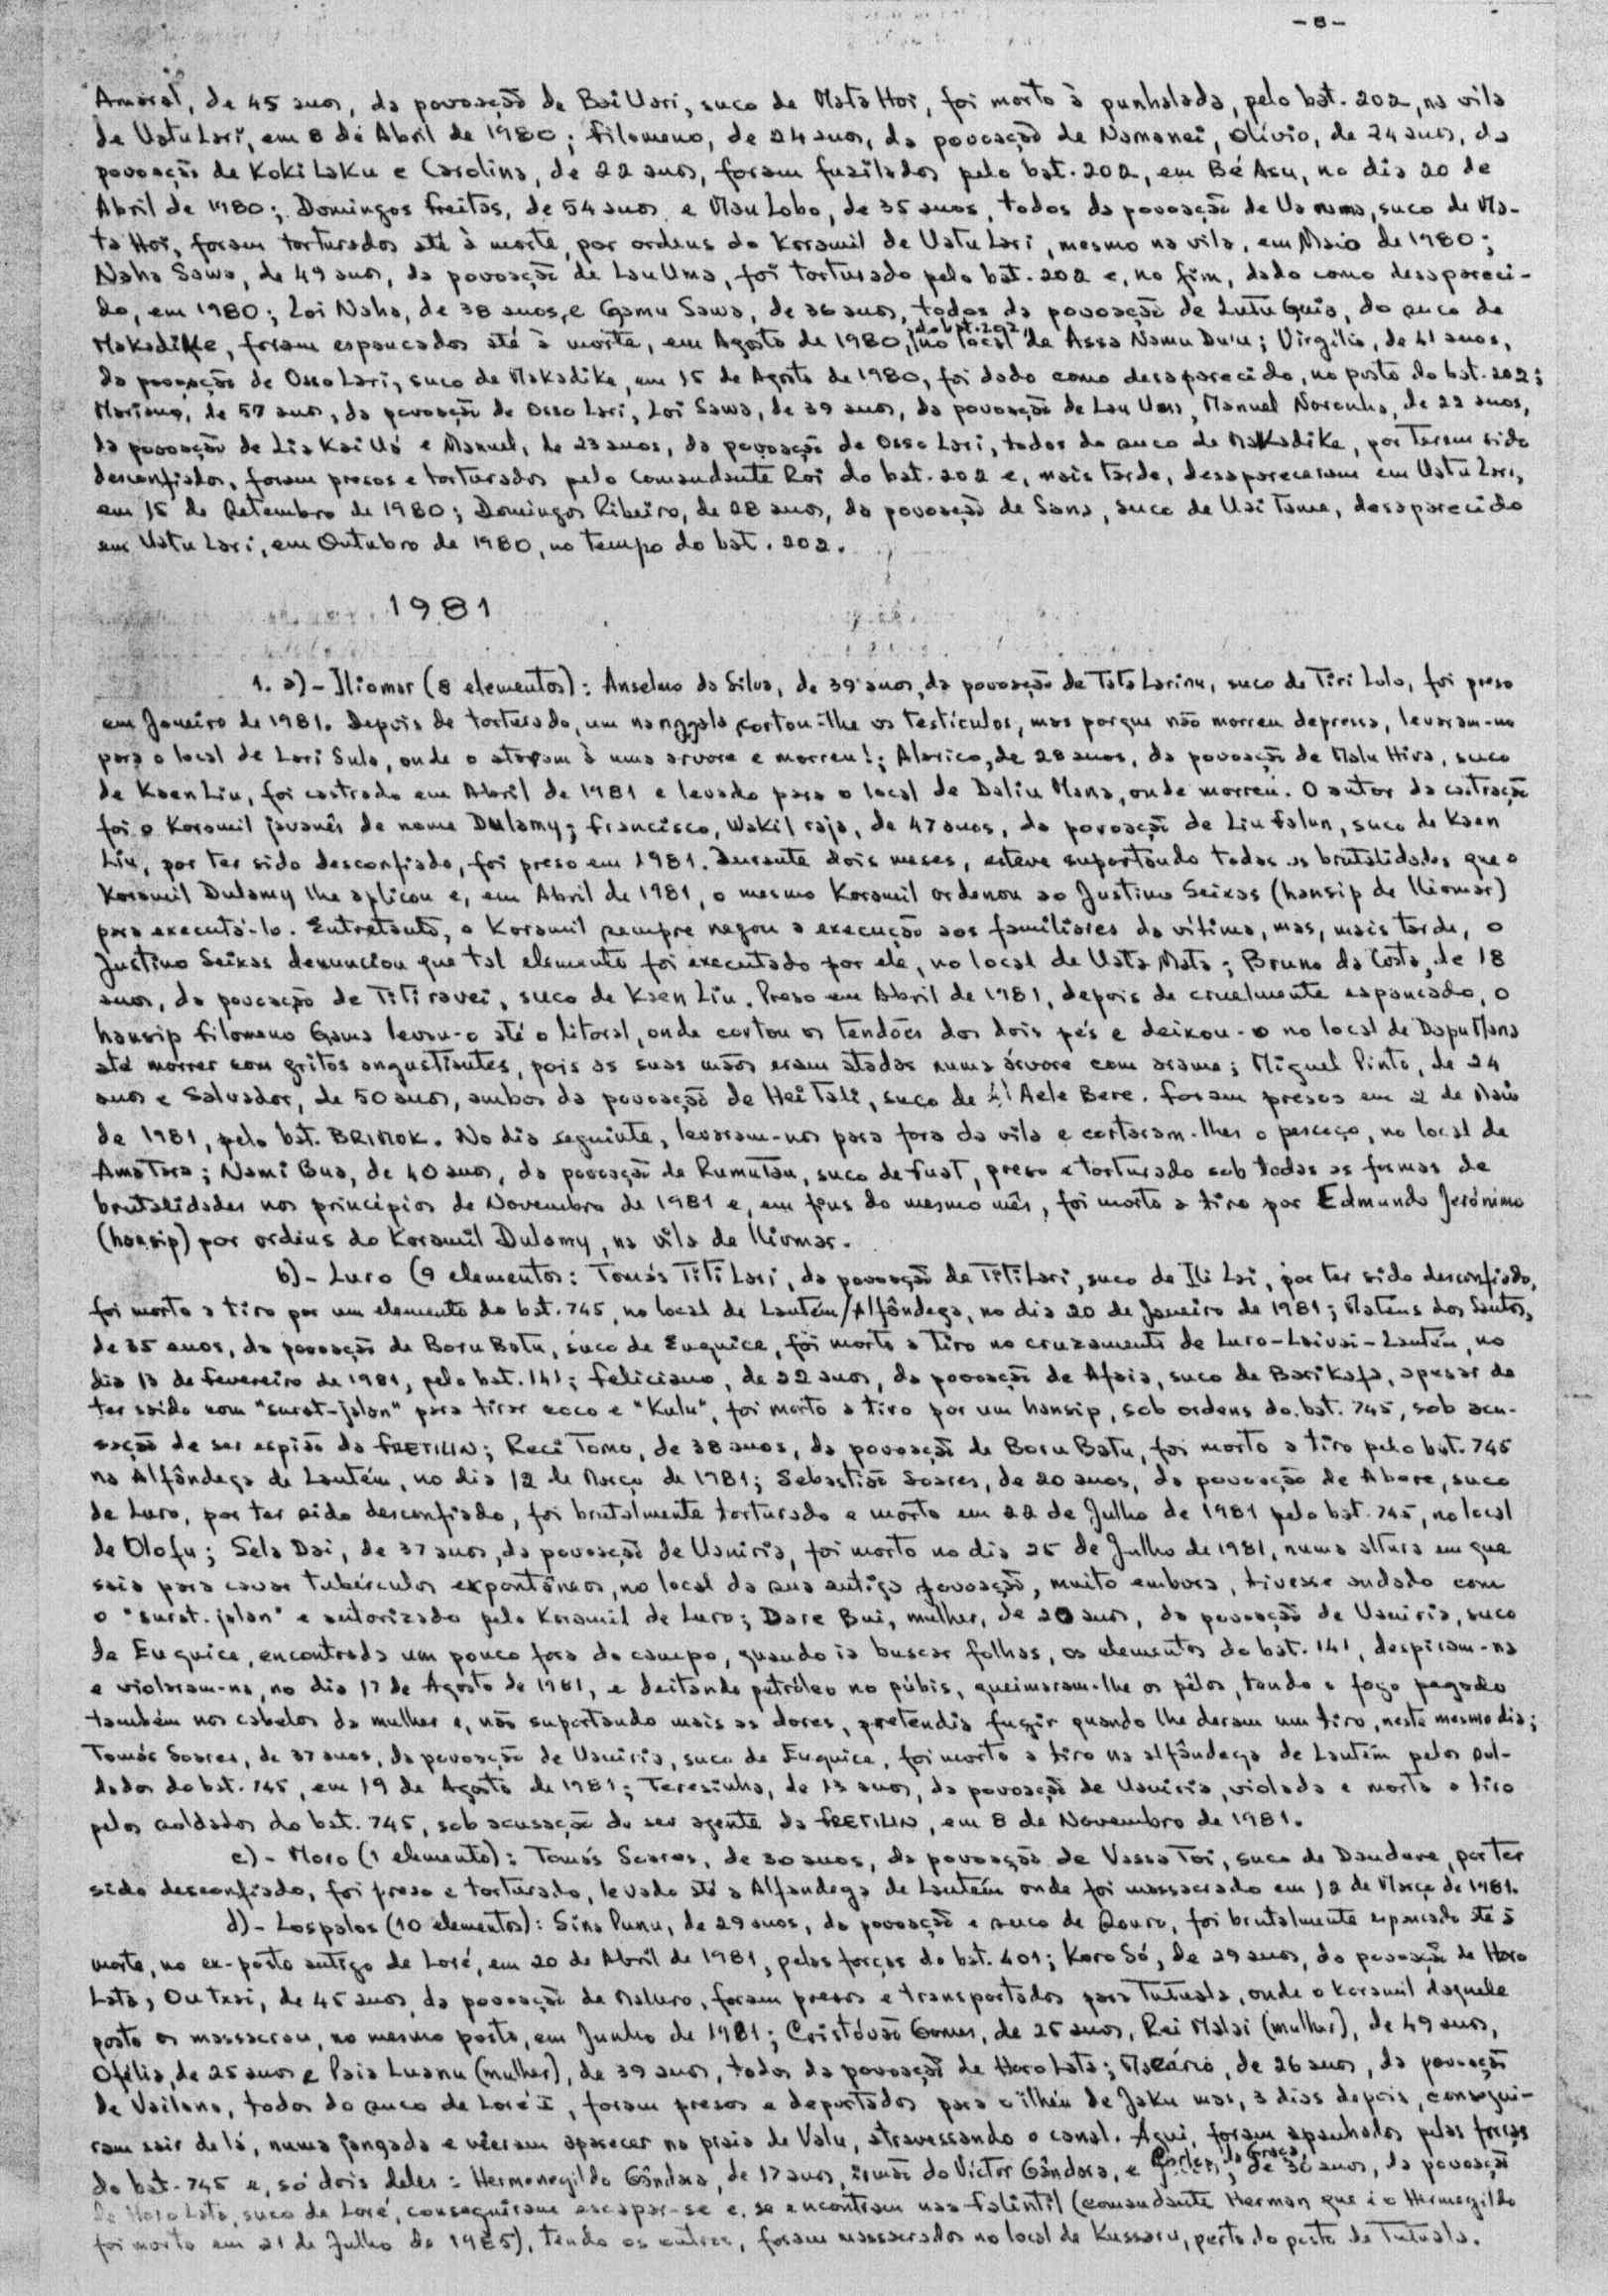 - 8 -
Amaral, de 45 anos, da povoação de Bai Uari, suco de Mata Hoi, foi morto à punhalada, pelo bat. 202, na vila
de Uatu Lari, em 8 de Abril de 1980; Filomeno, de 24 anos, da povoação de Namanei, Olívio, de 24 anos, da
povoação de Koki Laku e Carolina, de 22 anos, foram fuzilados pelo bat. 202, em Bé Asu, no dia 20 de
Abril de 1980; Domingos Freitas, de 54 anos e Mau Lobo, de 35 anos, todos da povoação de Ua nama, suco de Ma-
ta Hoi, foram torturados até à morte, por ordens do Koramil de Uatu Lari, mesmo na vila, em Maio de 1980;
Naha Sawa, de 49 anos, da povoação de Lau Uma, foi torturado pelo bat. 202 e, no fim, dado como desapareci-
do, em 1980; Loi Naha, de 38 anos, e Gamu Sawa, de 36 anos, todos da povoação de Lutu Guia, do suco de
Makadike, foram espancados até à morte, em Agosto de 1980, do bat. 202, no local de Assa Namu Du'u; Virgílio, de 41 anos,
da povoação de Osso Lari, suco de Makadike, em 15 de Agosto de 1980, foi dado como desaparecido, no posto do bat. 202;
Mariano, de 57 anos, da povoação de Osso Lari, Loi Sawa, de 39 anos, da povoação de Lau Uma, Manuel Noronha, de 22 anos,
da povoação de Lia Kai Uá e Manuel, de 23 anos, da povoação de Osso Lari, todos do suco de Makadike, por terem sido
desconfiados, foram presos e torturados pelo Comandante Roi do bat. 202 e, mais tarde, desapareceram em Uatu Lari,
em 15 de Setembro de 1980; Domingos Ribeiro, de 28 anos, da povoação de Sana, suco de Uai Tame, desaparecido
em Uatu Lari, em Outubro de 1980, no tempo do bat. 202.
1981
1. a) - Iliomar (8 elementos): Anselmo da Silva, de 39 anos, da povoação de Tata Larinu, suco de Tiri Lolo, foi preso
em Janeiro de 1981. Depois de torturado, um nanggala cortou-lhe os testículos, mas porque não morreu depressa, levaram-no
para o local de Lari Sula, onde o ataram à uma arvore e morreu!; Alarico, de 28 anos, da povoação de Malu Hira, suco
de Kaen Liu, foi castrado em Abril de 1981 e levado para o local de Daliu Mana, onde morreu. O autor da castração
foi o Koramil javanês de nome Dulamy; Francisco, Wakil raja, de 47 anos, da povoação de Liu Falun, suco de Kaen
Liu, por ter sido desconfiado, foi preso em 1981. Durante dois meses, esteve suportando todas as brutalidades que o
Koramil Dulamy lhe aplicou e, em Abril de 1981, o mesmo Koramil ordenou ao Justino Seixas (hansip de Iliomar)
para executá-lo. Entretanto, o Koramil sempre negou a execução aos familiares da vítima, mas, mais tarde, o
Justino Seixas denunciou que tal elemento foi executado por ele, no local de Uata Mata; Bruno da Costa, de 18
anos, da povoação de Titiravei, suco de Kaen Liu. Preso em Abril de 1981, depois de cruelmente espancado, o
hansip Filomeno Gama levou-o até o litoral, onde cortou os tendões dos dois pés e deixou-o no local de Dapu Mana
até morrer com gritos angustiantes, pois as suas mãos eram atadas numa árvore com arame; Miguel Pinto, de 24
anos e Salvador, de 50 anos, ambos da povoação de Hei Tali, suco de Aele Bere. Foram presos em 2 de Maio
de 1981, pelo bat. BRIMOK. No dia seguinte, levaram-nos para fora da vila e cortaram-lhes o pescoço, no local de
Amatara; Nami Bua, de 40 anos, da povoação de Rumutau, suco de Fuat, preso e torturado sob todas as formas de
brutalidades nos princípios de Novembro de 1981 e, em fins do mesmo mês, foi morto a tiro por Edmundo Jerónimo
(hansip) por ordens do Koramil Dulamy, na vila de Iliomar.
b) - Luro (9 elementos: Tomás Titi Lari, da povoação de Titilari, suco de Ili Lai, por ter sido desconfiado,
foi morto a tiro por um elemento do bat. 745, no local de Lautém/Alfândega, no dia 20 de Janeiro de 1981; Mateus dos Santos,
de 35 anos, da povoação de Boru Batu, suco de Euquice, foi morto a tiro no cruzamento de Luro-Laivai-Lautém, no
dia 13 de Fevereiro de 1981, pelo bat. 141; Feliciano, de 22 anos, da povoação de Afaia, suco de Barikafa, apesar de
ter saído com "surat-jalan" para tirar coco e "Kulu", foi morto a tiro por um hansip, sob ordens do bat. 745, sob acu-
sação de ser espião da FRETILIN; Reci Tomo, de 38 anos, da povoação de Boru Batu, foi morto a tiro pelo bat. 745
na Alfândega de Lautém, no dia 12 de Março de 1981; Sebastião Soares, de 20 anos, da povoação de Abere, suco
de Luro, por ter sido desconfiado, foi brutalmente torturado e morto em 22 de Julho de 1981 pelo bat. 745, no local
de Olofu; Sela Dai, de 37 anos, da povoação de Uaniria, foi morto no dia 25 de Julho de 1981, numa altura em que
saia para cavar tubérculos expontâneos, no local da sua antiga povoação, muito embora, tivesse andado com
o "surat-jalan" e autorizado pelo Koramil de Luro; Dare Bui, mulher, de 20 anos, da povoação de Uaniria, suco
de Euquice, encontrada um pouco fora do campo, quando ia buscar folhas, os elementos do bat. 141, despiram-na
e violaram-na, no dia 17 de Agosto de 1981, e deitando petróleo no púbis, queimaram-lhe os pêlos, tendo o fogo pegado
também nos cabelos da mulher e, não suportando mais as dores, pretendia fugir quando lhe deram um tiro, neste mesmo dia;
Tomás Soares, de 37 anos, da povoação de Uaniria, suco de Euquice, foi morto a tiro na alfândega de Lautém pelos sol-
dados do bat. 745, em 19 de Agosto de 1981; Teresinha, de 13 anos, da povoação de Uaniria, violada e morta a tiro
pelos soldados do bat. 745, sob acusação de ser agente da FRETILIN, em 8 de Novembro de 1981.
c) - Moro (1 elemento): Tomás Soares, de 30 anos, da povoação de Vassa Toi, suco de Daudere, por ter
sido desconfiado, foi preso e torturado, levado até a Alfandega de Lautém onde foi massacrado em 12 de Março de 1981.
d) - Lospalos (10 elementos): Sina Punu, de 29 anos, da povoação e suco de Souro, foi brutalmente espancado até à
morte, no ex-posto antigo de Loré, em 20 de Abril de 1981, pelas forças do bat. 401; Koro Só, de 29 anos, da povoação de Horo
Lata, Ou Txai, de 45 anos, da povoação de Maluro, foram presos e transportados para Tutuala, onde o Koramil daquele
posto os massacrou, no mesmo posto, em Junho de 1981; Cristóvão Gomes, de 25 anos, Rei Malai (mulher), de 49 anos,
Ofélia, de 25 anos e Paia Luanu (mulher), de 39 anos, todos da povoação de Horo Lata; Macário, de 26 anos, da povoação
de Vailana, todos do suco de Loré I, foram presos e deportados para o ilhéu de Jaku mas, 3 dias depois, consegui-
ram sair de lá, numa jangada e vieram aparecer na praia de Valu, atravessando o canal. Aqui, foram apanhados pelas forças
do bat. 745 e, só dois deles: Hermenegildo Gândara, de 17 anos, irmão do Víctor Gândara, e Carlos da Graça, de 36 anos, da povoação
de Horo Lata, suco de Loré, conseguiram escapar-se e, se encontram nas Falintil (comandante Herman que é o Hermegildo
foi morto em 21 de Julho de 1985), tendo os outros, foram massacrados no local de Kussaru, perto do posto de Tutuala.